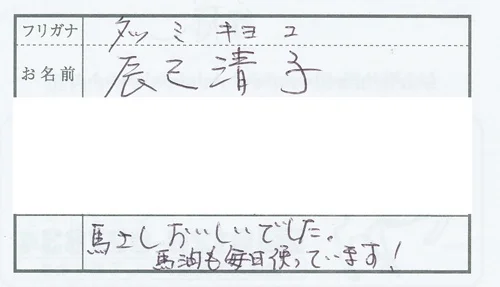 フリガナ タツミ キヨコ
お名前 辰己清子
馬さし おいしいでした。
馬油も毎日使っています!